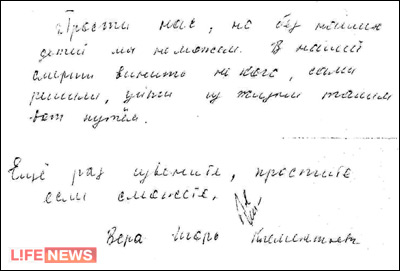 Прости нас, но без наших
детей мы не можем. В нашей
смерти винить не кого, сами
решили, уйти из жизни таким
вот путём.
Ещё раз извените, простите
если сможете.
Вера Игорь Клементьевы
LIFENEWS